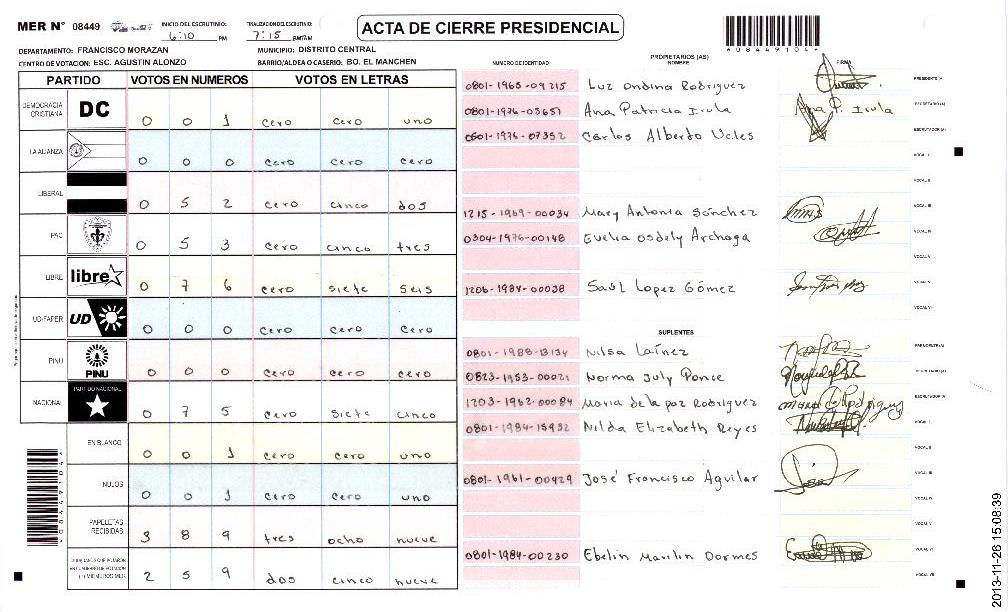 MER N° 08449
INICIO DEL ESCRUTINIO: 6:10 PM
FINALIZACION ESCRUTINIO: 7:15
ACTA DE CIERRE PRESIDENCIAL
0844910
DEPARTAMENTO: FRANCISCO MORAZAN
MUNICIPIO: DISTRITO CENTRAL
CENTRO DE VOTACION: ESC. AGUSTIN ALONZO
BARRIO/ALDEA O CASERIO: BO. EL MANCHEN
NUMERO DE IDENTIDAD
PROPIETARIOS (AS)
NOMBRE
FIRMA
PARTIDO VOTOS EN NUMEROS VOTOS EN LETRAS
DEMOCRACIA CRISTIANA DC 0 0 1 cero cero uno
LA ALIANZA 0 0 0 cero cero cero
LIBERAL 0 5 2 cero cinco dos
PAC 0 5 3 cero cinco tres
LIBRE libre 0 7 6 cero siete seis
UD-FAPER UD 0 0 0 cero cero cero
PINU PINU 0 0 0 cero cero cero
NACIONAL PARTIDO NACIONAL 0 7 5 cero siete cinco
EN BLANCO 0 0 1 cero cero uno
NULOS 0 0 1 cero cero uno
PAPELETAS RECIBIDAS 3 8 9 tres ocho nueve
CIUDADANOS QUE VOTARON EN CUADERNO DE VOTACION (+) MIEMBROS MER 2 5 9 dos cinco nueve
0801-1965-09215 Luz Ondina Rodriguez PRESIDENTE (A)
0801-1976-03657 Ana Patricia Irula Ana P. Irula SECRETARIO (A)
0601-1976-07352 Carlos Alberto Ucles ESCRUTADOR (A)
VOCAL I
VOCAL II
1215-1969-00034 Mary Antonia Sánchez VOCAL III
0304-1976-00148 Evelia Osdely Archaga VOCAL IV
VOCAL V
1206-1984-00038 Saúl Lopez Gómez
SUPLENTES
0801-1988-13134 Nilsa Laínez PRESIDENTE (A)
0823-1953-00021 Norma July Ponce SECRETARIO (A)
1203-1962-00084 Maria de la paz Rodriguez ESCRUTADOR (A)
0801-1984-15952 Nilda Elizabeth Reyes VOCAL I
VOCAL II
0801-1961-00429 José Francisco Aguilar VOCAL III
VOCAL IV
VOCAL V
0801-1984-00230 Ebelin Marilin Dormes VOCAL VI
VOCAL VII
2013-11-26 15:08:39